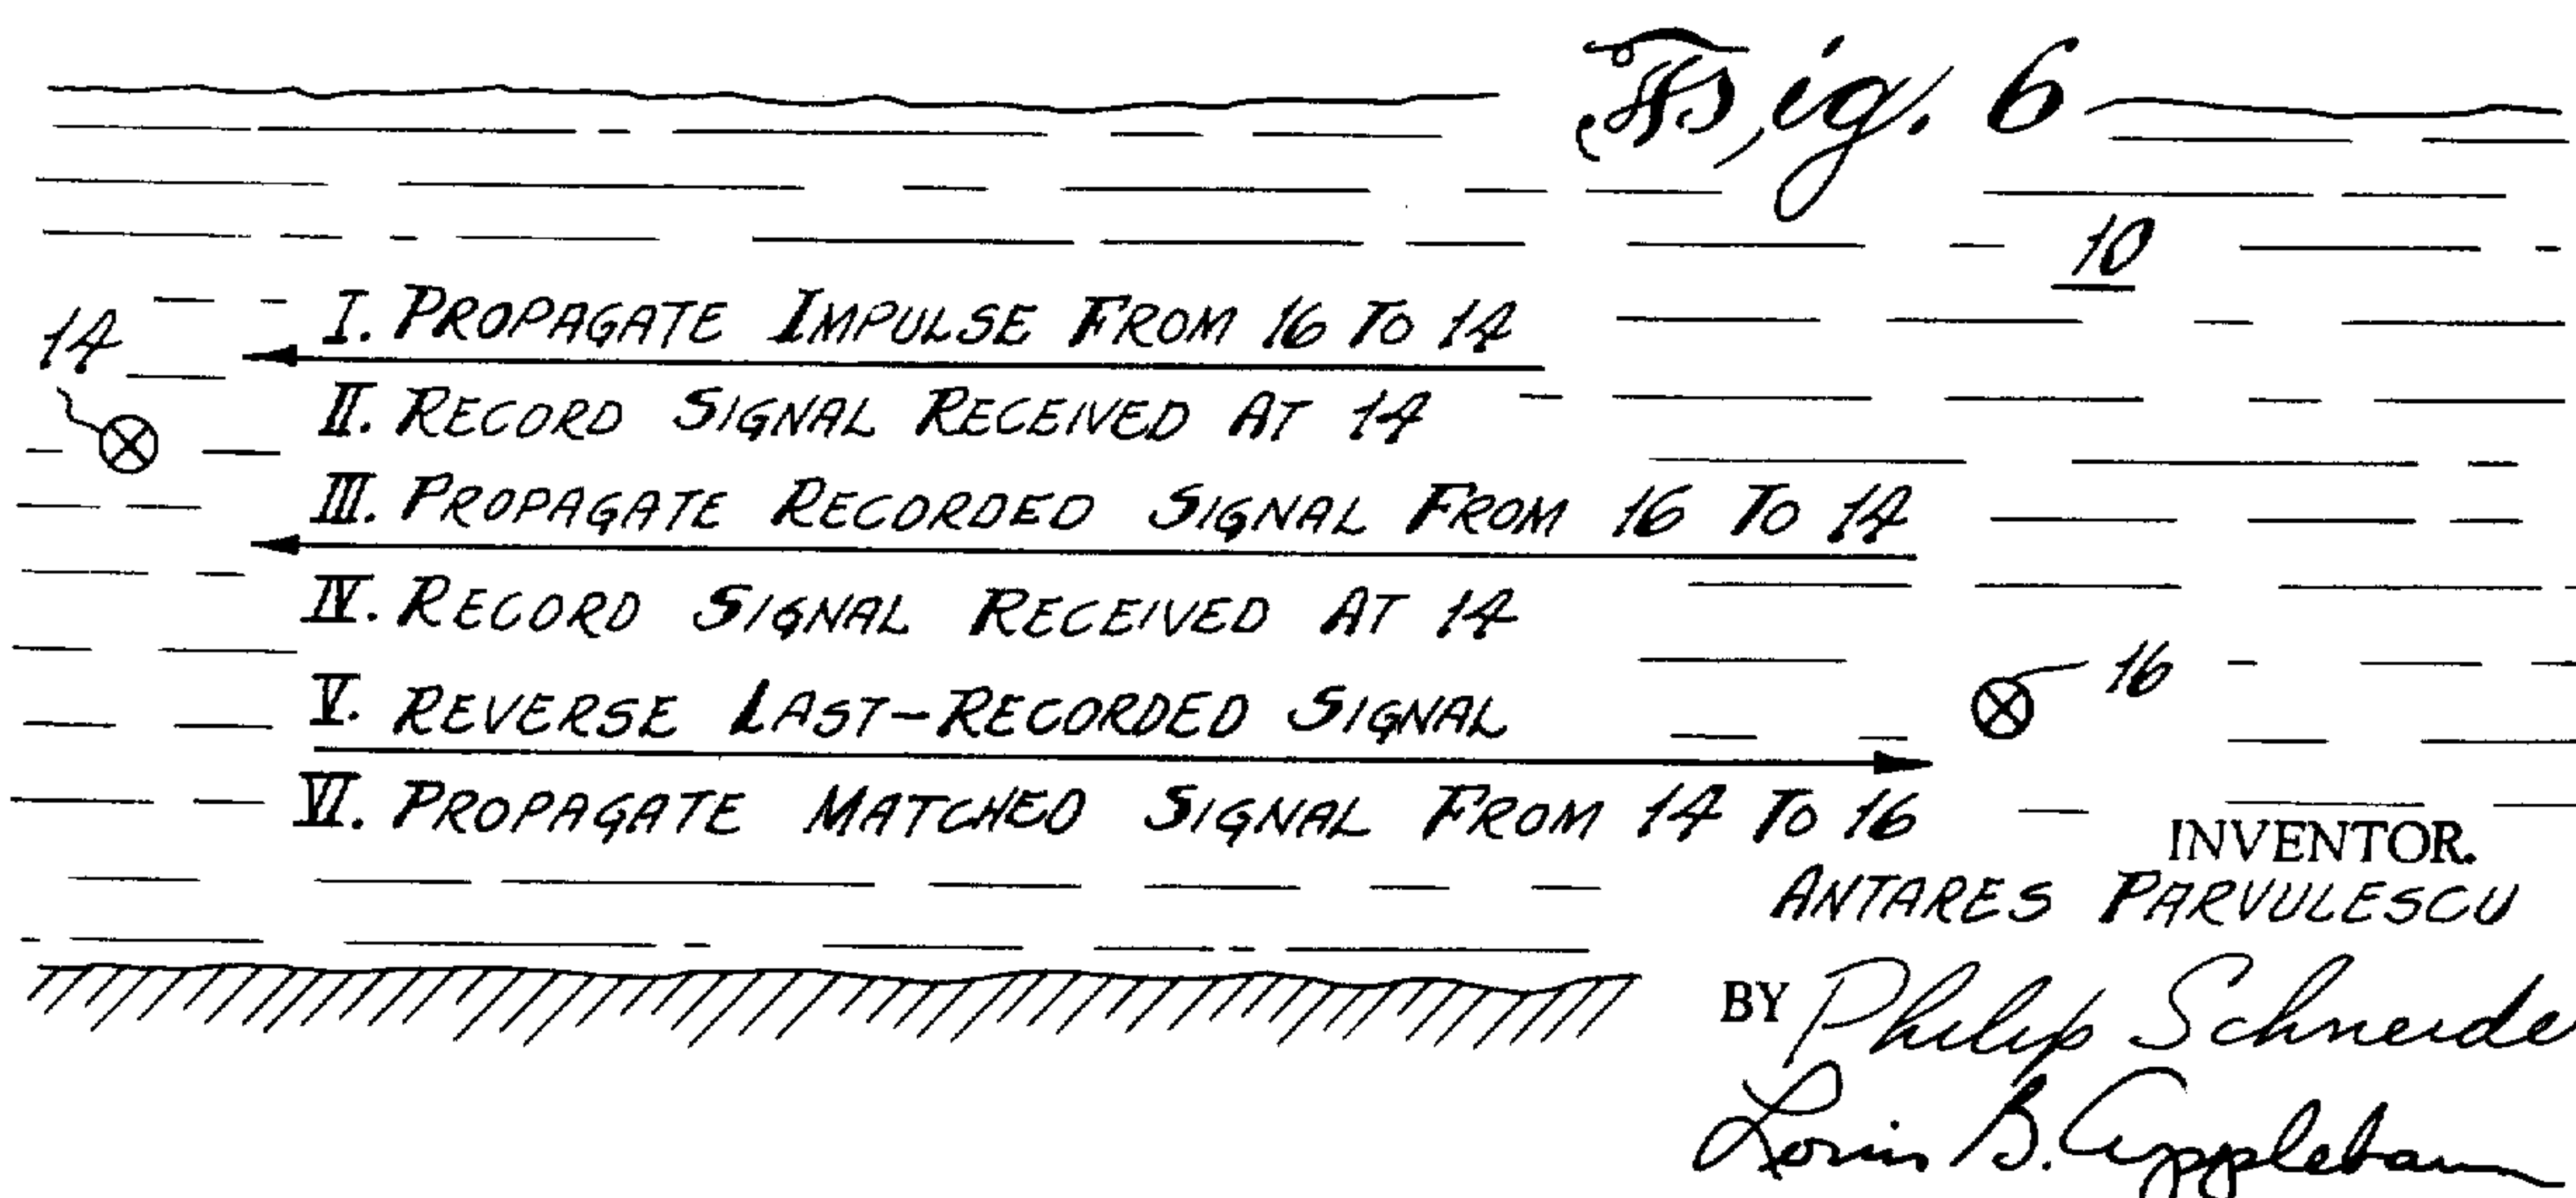 Fig. 6
10
14
I. PROPAGATE IMPULSE FROM 16 TO 14
II. RECORD SIGNAL RECEIVED AT 14
III. PROPAGATE RECORDED SIGNAL FROM 16 TO 14
IV. RECORD SIGNAL RECEIVED AT 14
16
V. REVERSE LAST-RECORDED SIGNAL
VI. PROPAGATE MATCHED SIGNAL FROM 14 TO 16
INVENTOR.
ANTARES PARVULESCU
BY Philip Schneide
Louis B. Applebaum